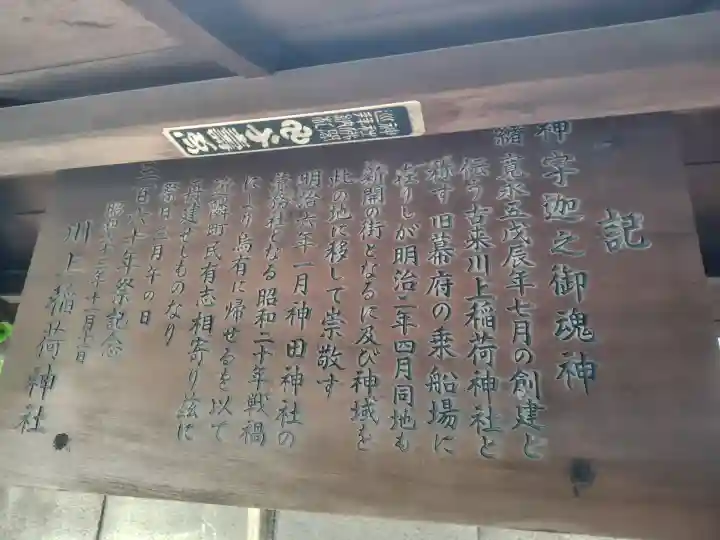 記
神 宇迦之御魂神
緒 寛永五戊辰年七月の創建と
伝う古来川上稲荷神社と
称す 旧幕府の乗船場に
在りしが明治二年四月同地も
新開の街となるに及び神域を
此の地に移して崇敬す
明治六年一月神田神社の
兼務社となる 昭和二十年戦禍
により烏有に帰せるを以て
近隣町民有志相寄り茲に
再建せしものなり
祭日 三月午の日
三百六十年祭記念
昭和六十二年十一月吉日
川上稲荷神社